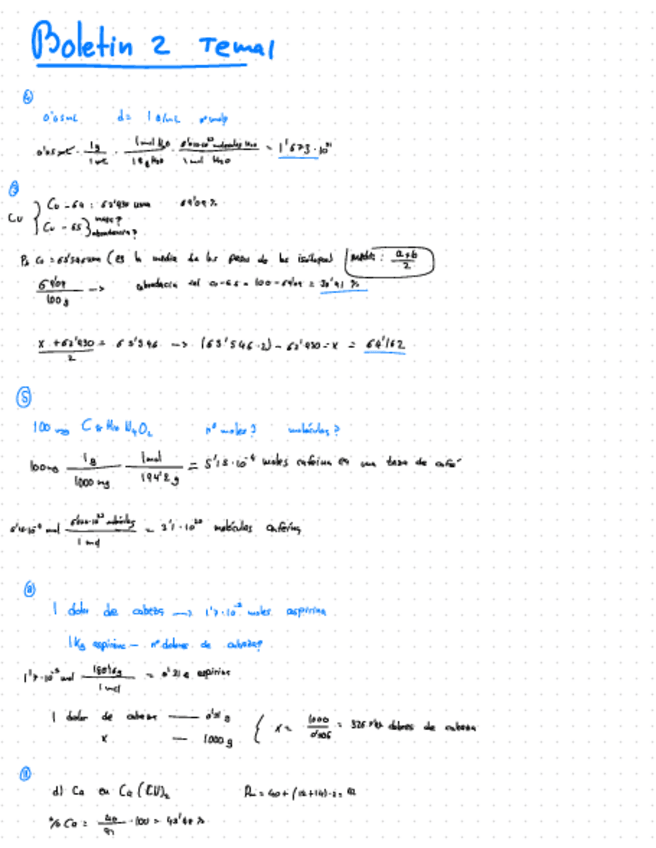 Boletin 2 Tema 1
0'05 mL d = 1 g/mL nº molec
0'05 mL · 1g / 1 mL · 1 mol H₂O / 18 g H₂O · moléculas H₂O / 1 mol H₂O = 1'673 · 10²¹
Cu
Cu-64 : 62'930 uma 69'09 %
Cu-65 masa? abundancia?
Cu = 63'546 uma (es la media de los pesos de los isótopos) media : a+b / 2
69'09 / 100 g → abundancia del Cu-65 = 100 - 69'09 = 30'91 %
x + 62'930 / 2 = 63'546 → (63'546·2) - 62'930 = x = 64'162
5
100 mg C₈H₁₀N₄O₂ nº moles? moléculas?
100 mg 1g / 1000 mg 1 mol / 194'2 g = 5'15·10⁻⁴ moles cafeína en una taza de café
5'15·10⁻⁴ mol 6'022·10²³ moléculas / 1 mol = 3'1·10²⁰ moléculas cafeína
8
1 dolor de cabeza → 1'7·10⁻³ moles aspirina
1 kg aspirina — nº dolores de cabeza?
1'7·10⁻³ mol / 1 mol = 0'31 g aspirina
1 dolor de cabeza — 0'31 g
x — 1000 g
x = 1000 / = dolores de cabeza
9
d) Ca en Ca(CN)₂ Pm = 40 + (12+14)·2 = 92
% Ca = 40 / 92 · 100 = 43'48 %